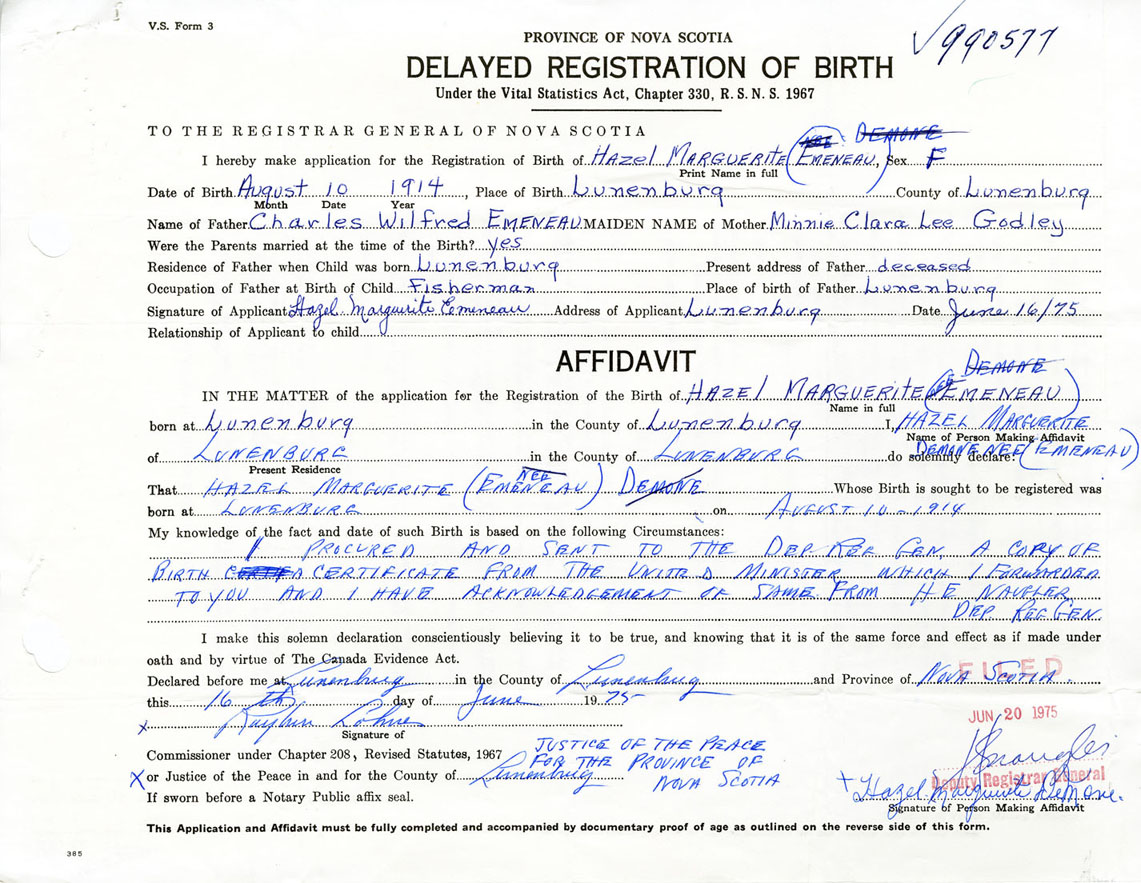 V.S. Form 3
✓990577
PROVINCE OF NOVA SCOTIA
DELAYED REGISTRATION OF BIRTH
Under the Vital Statistics Act, Chapter 330, R. S. N. S. 1967
TO THE REGISTRAR GENERAL OF NOVA SCOTIA
DEMONE
I hereby make application for the Registration of Birth of HAZEL MARGUERITE (EMENEAU), Sex F
Print Name in full
Date of Birth August 10 1914, Place of Birth Lunenburg County of Lunenburg
Month Date Year
Name of Father Charles Wilfred EMENEAU MAIDEN NAME of Mother Minnie Clara Lee Godley
Were the Parents married at the time of the Birth? yes
Residence of Father when Child was born Lunenburg Present address of Father deceased
Occupation of Father at Birth of Child Fisherman Place of birth of Father Lunenburg
Signature of Applicant Hazel Marguerite Emeneau Address of Applicant Lunenburg Date June 16/75
Relationship of Applicant to child
AFFIDAVIT
DEMONE
IN THE MATTER of the application for the Registration of the Birth of HAZEL MARGUERITE (EMENEAU)
Name in full
born at Lunenburg in the County of Lunenburg I, HAZEL MARGUERITE
Name of Person Making Affidavit
DEMONE NEE (EMENEAU)
of LUNENBURG in the County of LUNENBURG do solemnly declare:
Present Residence
NEE
That HAZEL MARGUERITE (EMENEAU) DEMONE Whose Birth is sought to be registered was
born at LUNENBURG on AUGUST 10 - 1914
My knowledge of the fact and date of such Birth is based on the following Circumstances:
I PROCURED AND SENT TO THE DEP REG GEN. A COPY OF
BIRTH CERTIFICATE FROM THE UNITED MINISTER WHICH I FORWARDED
TO YOU AND I HAVE ACKNOWLEDGEMENT OF SAME FROM H E NAUGLER
DEP. REG GEN.
I make this solemn declaration conscientiously believing it to be true, and knowing that it is of the same force and effect as if made under
oath and by virtue of The Canada Evidence Act.
FILED
Declared before me at Lunenburg in the County of Lunenburg and Province of NOVA SCOTIA.
this 16 th day of June 1975
JUN 20 1975
x
Signature of
Commissioner under Chapter 208, Revised Statutes, 1967
JUSTICE OF THE PEACE
FOR THE PROVINCE OF
NOVA SCOTIA
X or Justice of the Peace in and for the County of Lunenburg
Deputy Registrar General
+ Hazel Marguerite DeMone.
Signature of Person Making Affidavit
If sworn before a Notary Public affix seal.
This Application and Affidavit must be fully completed and accompanied by documentary proof of age as outlined on the reverse side of this form.
385